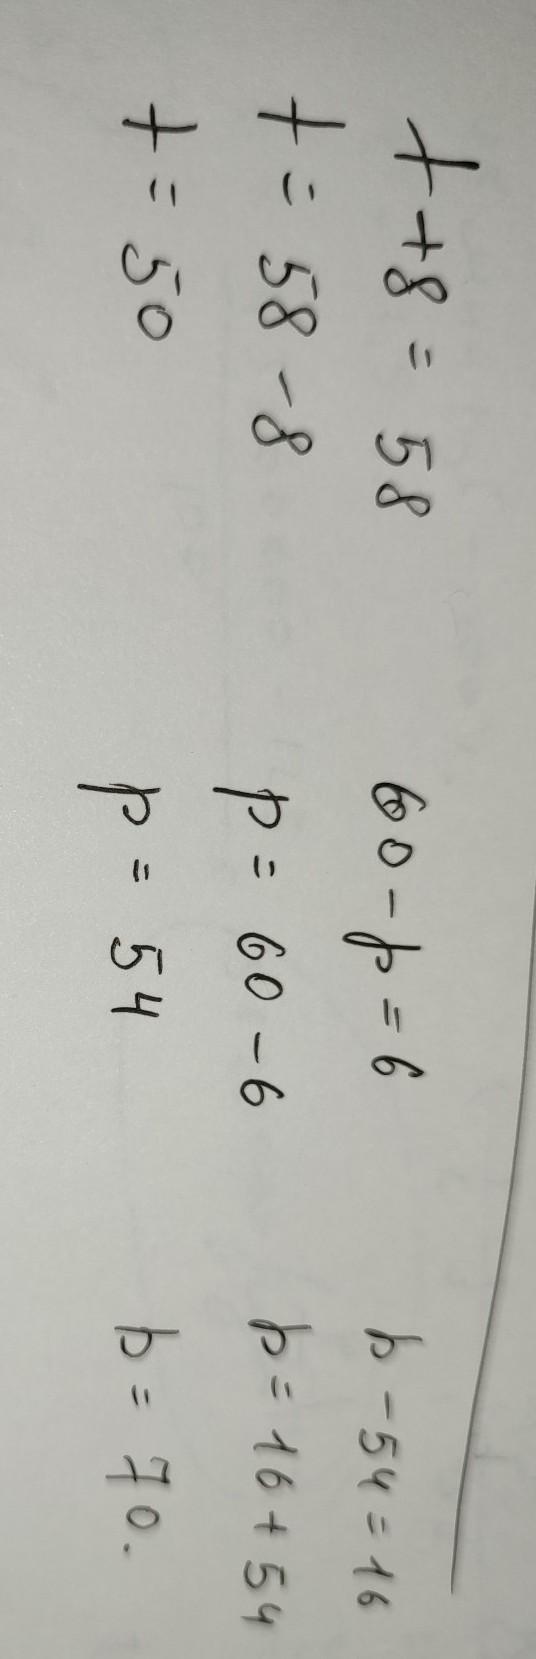 t + 8 = 58
t = 58 - 8
t = 50
60 - p = 6
p = 60 - 6
p = 54
b - 54 = 16
b = 16 + 54
b = 70.